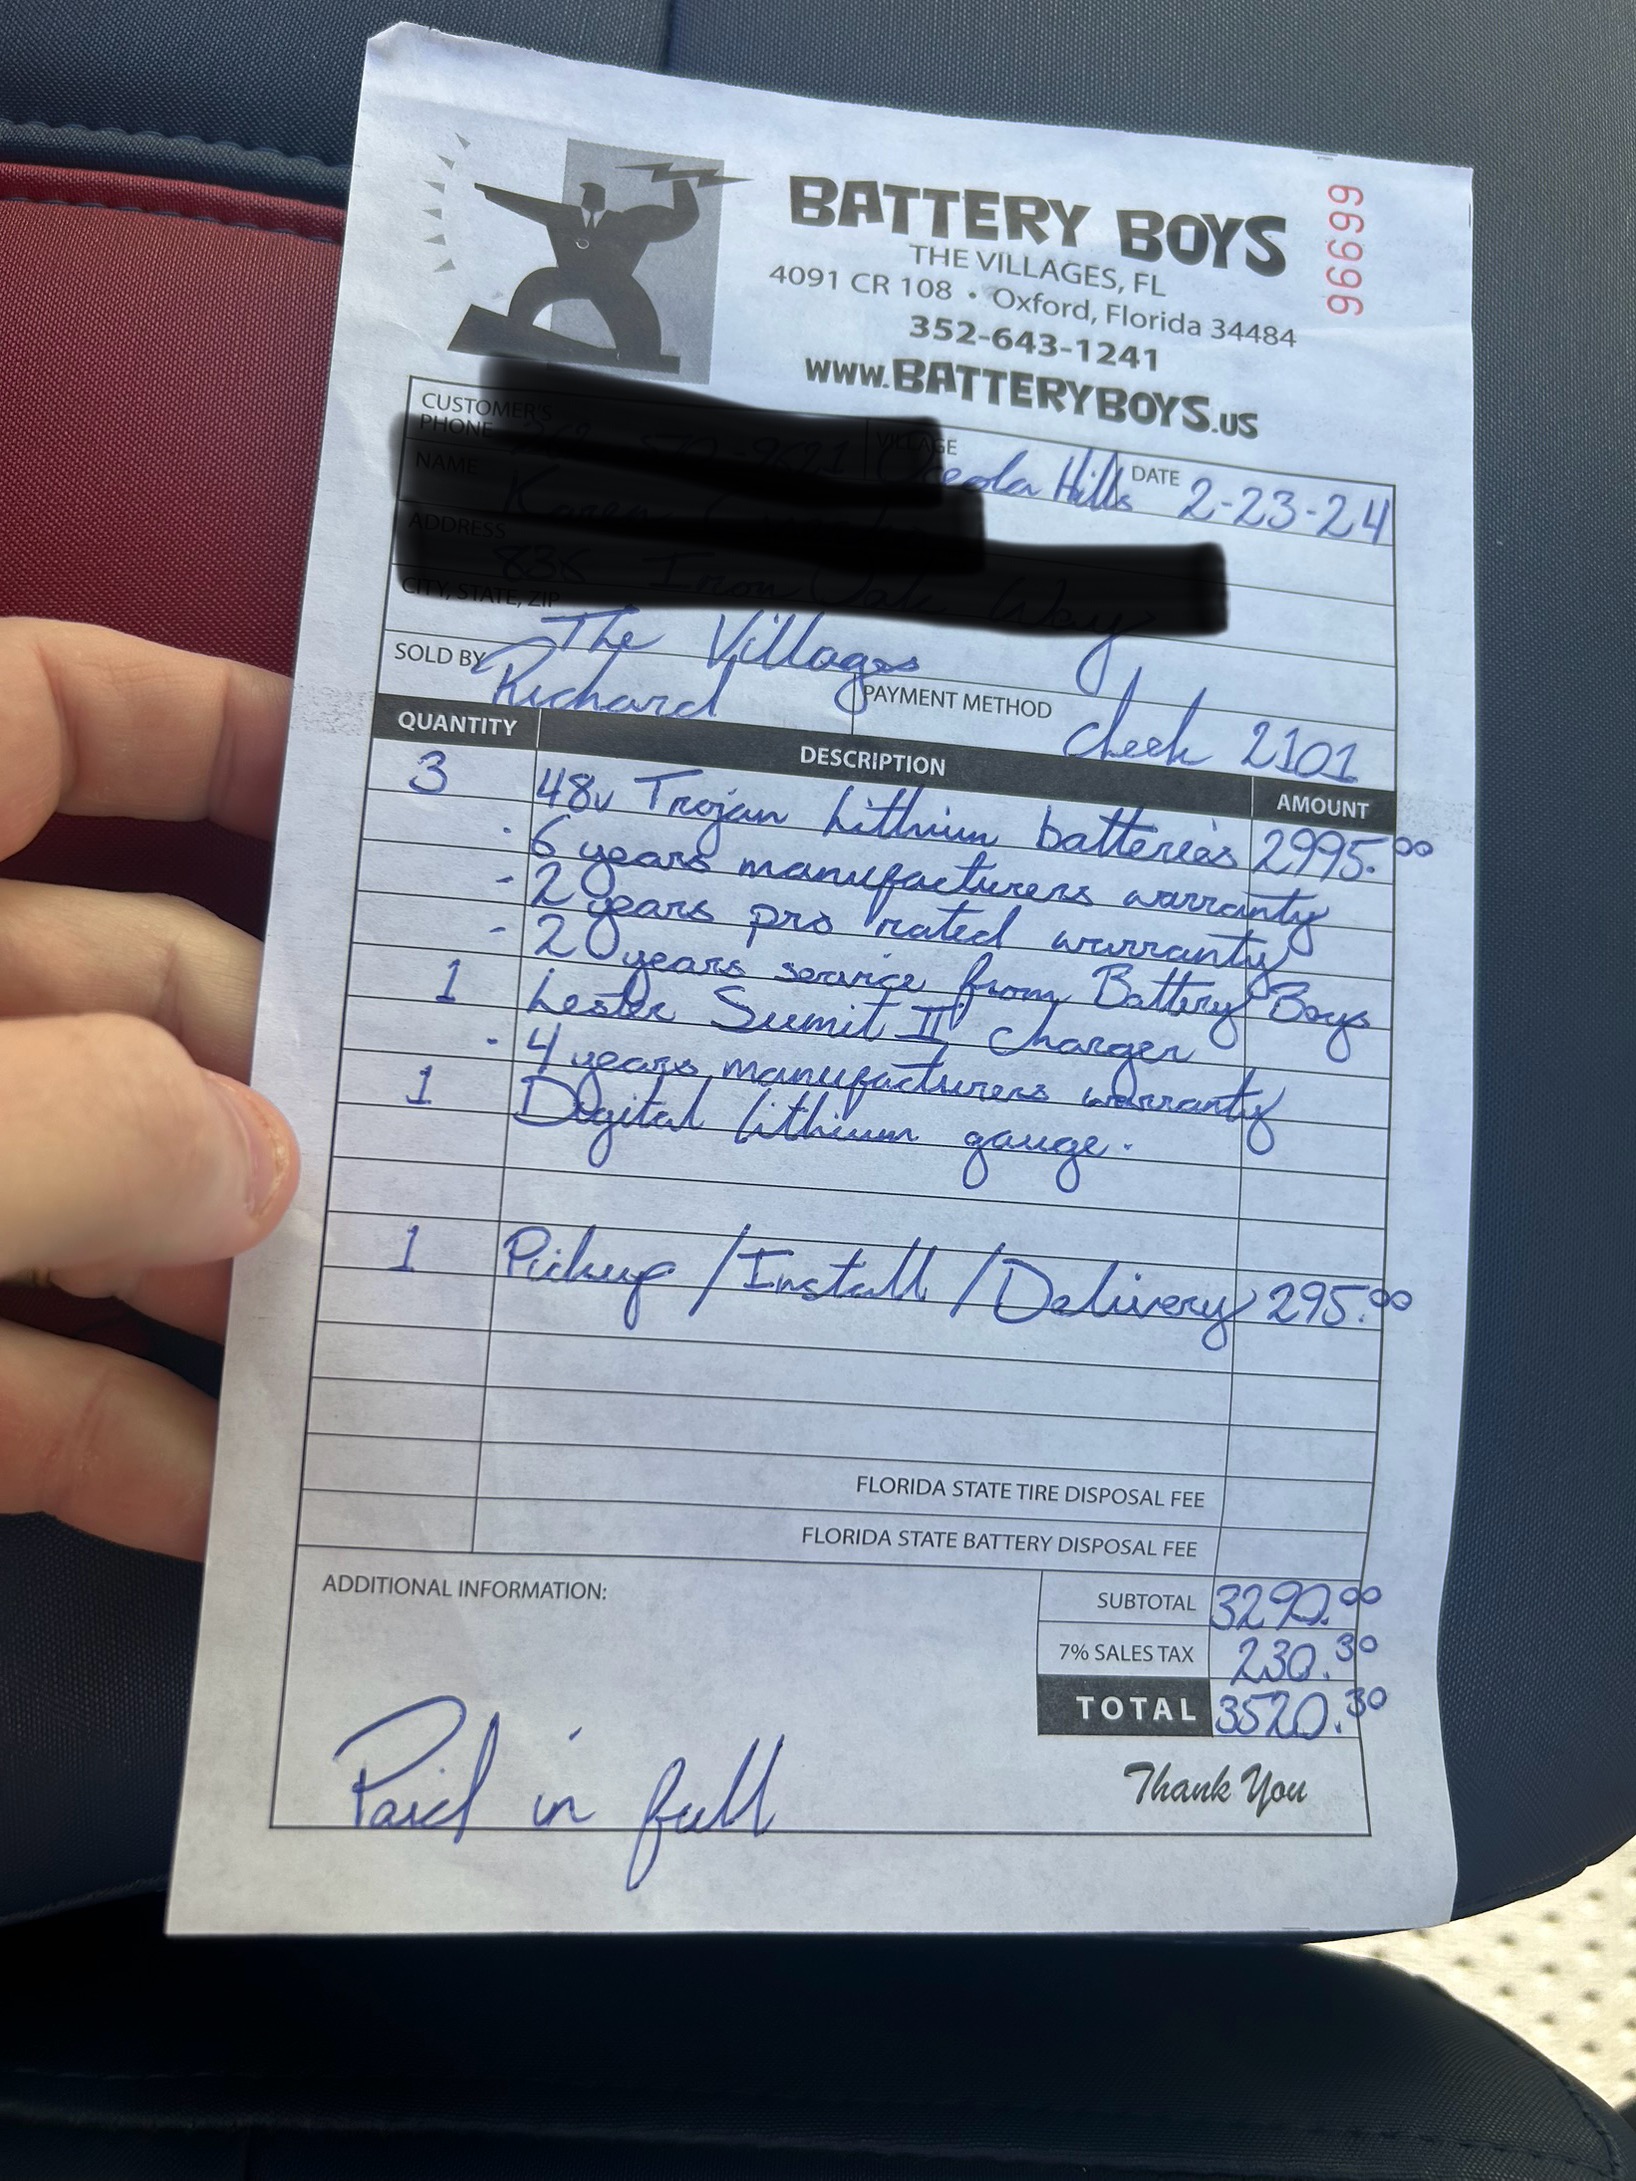 BATTERY BOYS
THE VILLAGES, FL
4091 CR 108 • Oxford, Florida 34484
352-643-1241
www.BATTERYBOYS.us
96699
CUSTOMER'S
PHONE
VILLAGE
Hills
DATE 2-23-24
NAME
ADDRESS
CITY, STATE, ZIP
The Villages
SOLD BY Richard
PAYMENT METHOD check 2101
QUANTITY DESCRIPTION AMOUNT
3 48v Trojan Lithium batteries 2995.00
- 6 years manufacturers warranty
- 2 years pro rated warranty
- 20 years service from Battery Boys
1 Lester Sumit II charger
- 4 years manufacturers warranty
1 Digital lithium gauge.
1 Pickup/Install/Delivery 295.00
FLORIDA STATE TIRE DISPOSAL FEE
FLORIDA STATE BATTERY DISPOSAL FEE
ADDITIONAL INFORMATION:
SUBTOTAL 3290.00
7% SALES TAX 230.30
TOTAL 3520.30
Paid in full
Thank You